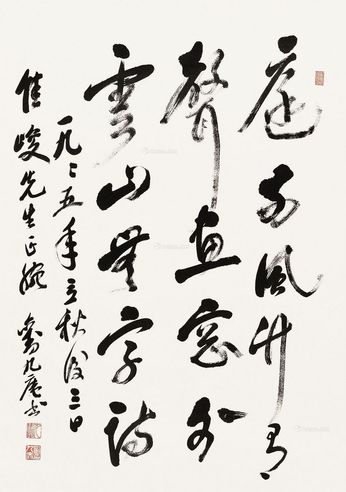 庭前風竹有
聲畫窗外
雲山無字詩
一九〻五年立秋後三日
佳峻先生正腕 劉九庵書